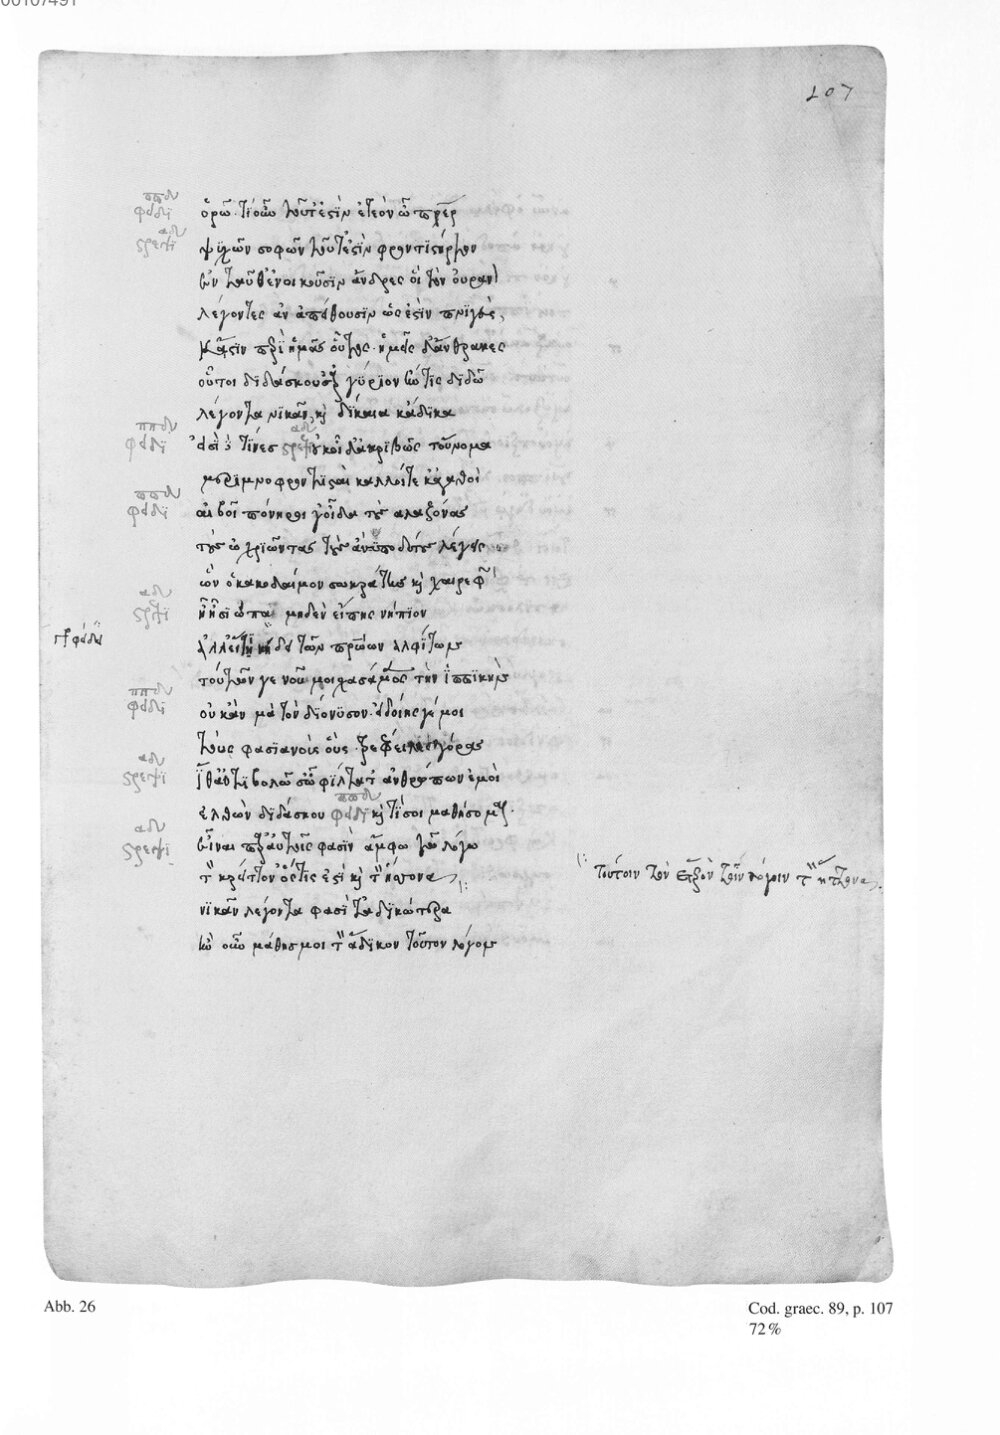 00107491
107
ὁρῶ· τί οὖν τοῦτ' ἐστὶν ἐτεὸν ὦ πάτερ
ψυχῶν σοφῶν τοῦτ' ἐστὶν φροντιστήριον
ἐνταῦθ' ἐνοικοῦσιν ἄνδρες οἳ τὸν οὐρανὸν
λέγοντες ἀναπείθουσιν ὡς ἔστιν πνιγεὺς,
κἄστιν περὶ ἡμᾶς οὗτος· ἡμεῖς δ' ἄνθρακες
οὗτοι διδάσκουσ' ἀργύριον ἤν τις διδῶ
λέγοντα νικᾶν, καὶ δίκαια κἄδικα
εἰσὶ δὲ τίνες οὐκ οἶδ' ἀκριβῶς τοὔνομα
μεριμνοφροντισταὶ καλλοί τε κἀγαθοί
αἰβοῖ πόνηροι γ' οἶδα τοὺς ἀλαζόνας
τοὺς ὠχριῶντας τοὺς ἀνυποδήτους λέγεις
ὧν ὁ κακοδαίμων σωκράτης καὶ χαιρεφῶν
ἢ ἢ σιώπα μηδὲν εἴπης νήπιον
ἀλλ' εἴ τι κήδει τῶν πατρώων ἀλφίτων
τούτων γενοῦ μοι σχασάμενος τὴν ἱππικήν
οὐκ ἂν μὰ τὸν διόνυσον εἰ δοίης γέ μοι
τοὺς φασιανοὺς οὓς τρέφει λεωγόρας
ἴθ' ἀντιβολῶ σ' ὦ φίλτατ' ἀνθρώπων ἐμοὶ
ἐλθὼν διδάσκου φειδι καὶ τί σοι μαθήσομαι·
εἶναι παρ' αὐτοῖς φασὶν ἄμφω τὼ λόγω
τὸν κρείττον' ὅστις ἐστὶ καὶ τὸν ἥττονα
τούτοιν τὸν ἕτερον τοῖν λόγοιν τὸν ἥττονα
νικᾶν λέγοντα φασὶ τἀδικώτερα
ἢν οὖν μάθης μοι τὸν ἄδικον τοῦτον λόγον
Abb. 26
Cod. graec. 89, p. 107
72 %